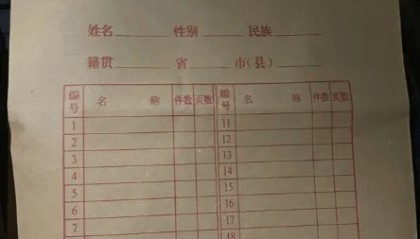 姓名 性别 民族
籍贯 省 市(县)
编号 名称 件数 页数 编号 名称 件数 页数
1 11
2 12
3 13
4 14
5 15
6 16
7 17
18